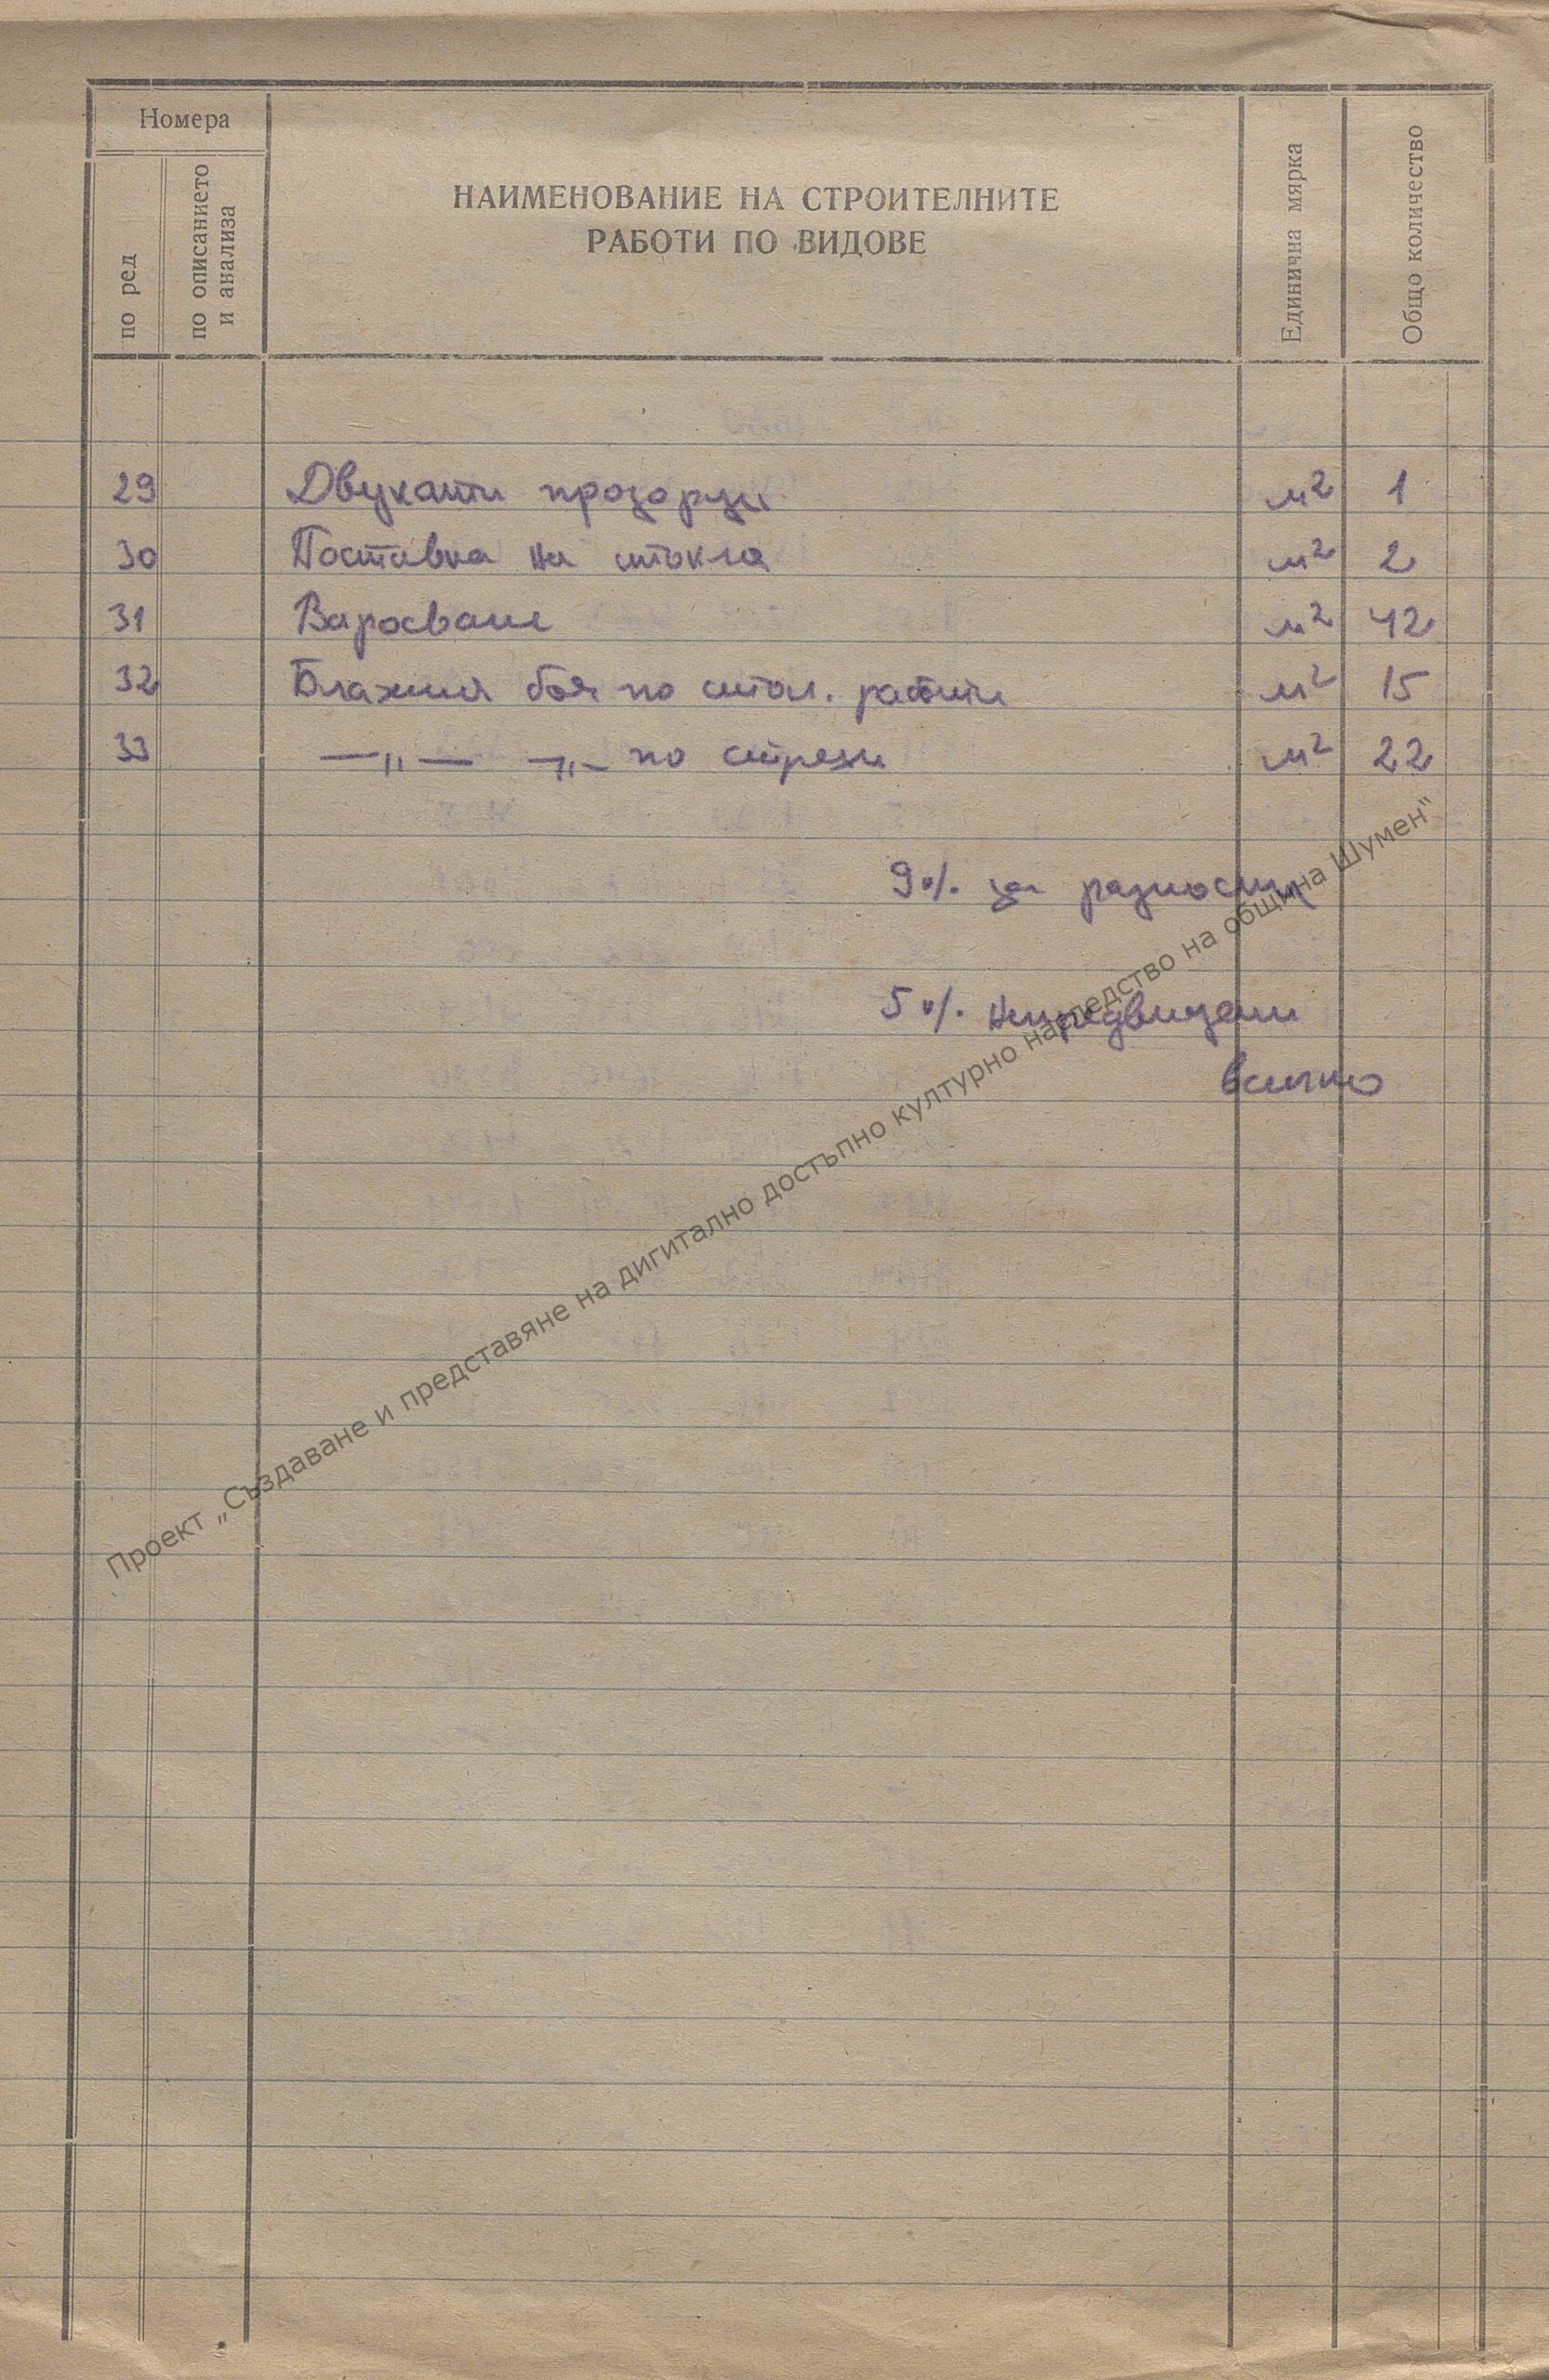 Номера
по ред
по описанието
и анализа
НАИМЕНОВАНИЕ НА СТРОИТЕЛНИТЕ
РАБОТИ ПО ВИДОВЕ
Единична мярка
Общо количество
29 Двукатни прозорци м2 1
30 Поставка на стъкла м2 2
31 Варосване м2 42
32 Блажна боя по стол. работи м2 15
33 —„— —„— по стрехи м2 22
9% за разноски
5% непредвидени
всичко
Проект „Създаване и представяне на дигитално достъпно културно наследство на община Шумен"